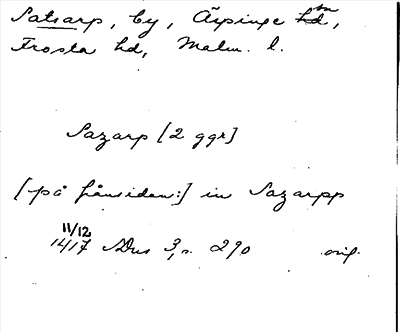 Satsarp, by, Äspinge sn,
Frosta hd, Malm. l.
Sazarp [2 ggr]
[på frånsidan:] in Sazarpp
11/12
1417 SDns 3, s. 290 orig.